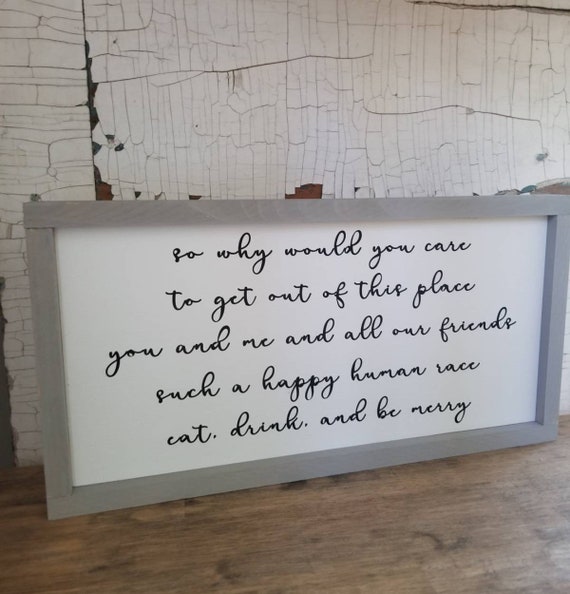 so why would you care
to get out of this place
you and me and all our friends
such a happy human race
eat, drink, and be merry